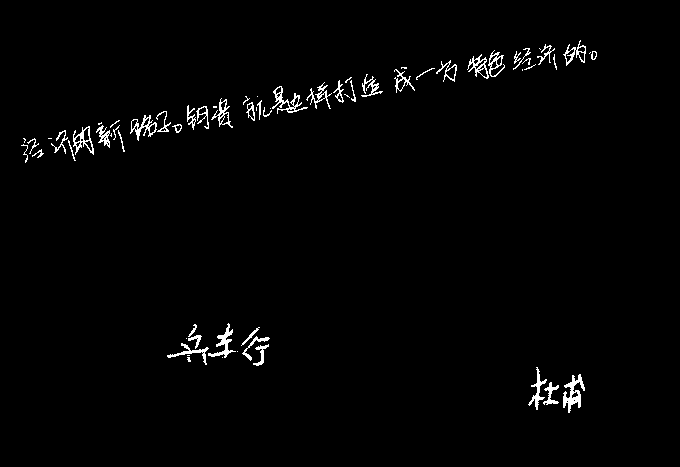 经济的新路子。钥资就是这样打造成一为特色经济的。
兵车行
杜甫